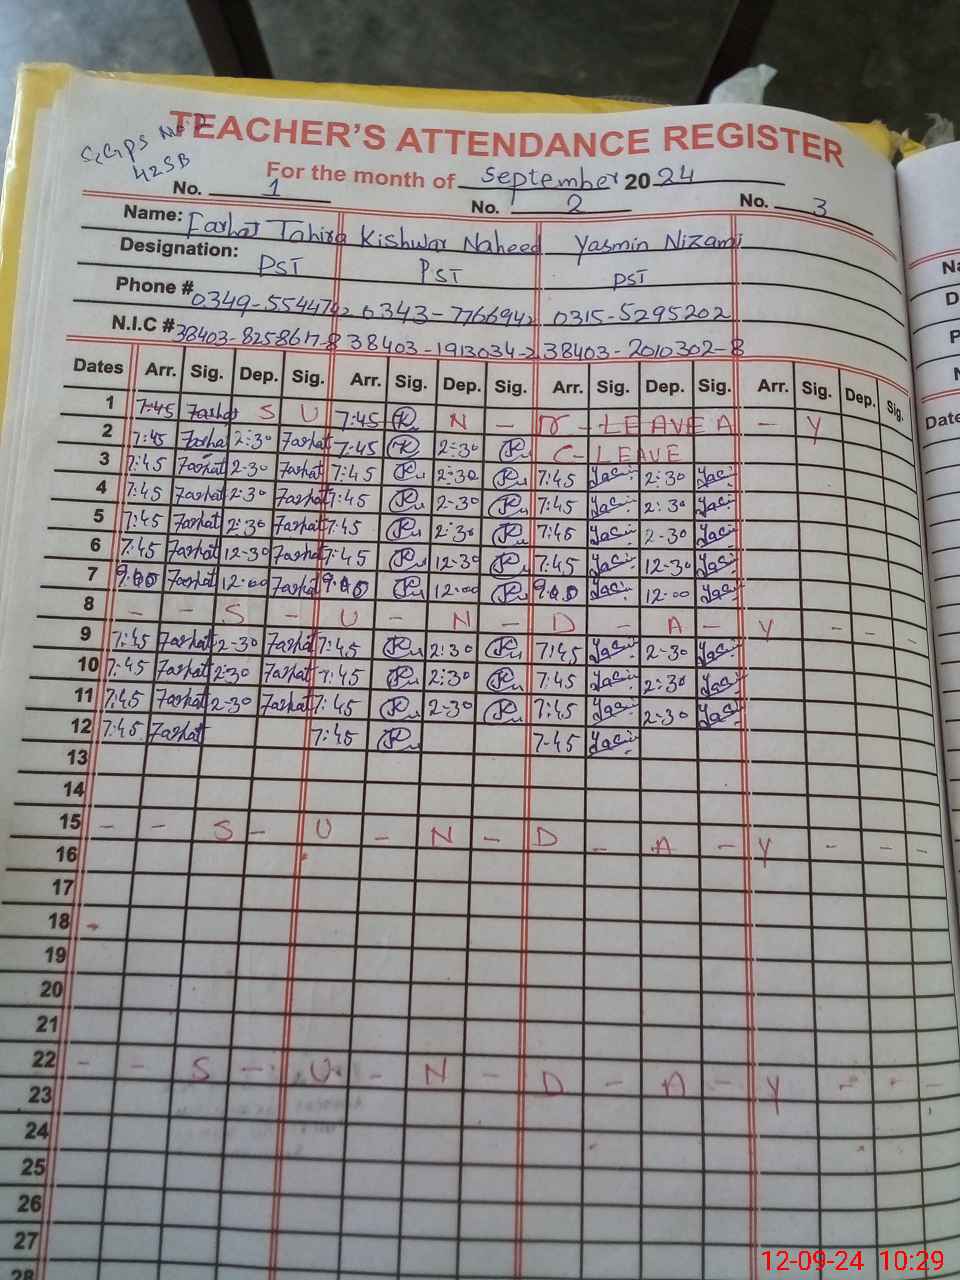 TEACHER'S ATTENDANCE REGISTER
GGPS No 2
42SB
For the month of September 2024
No. 1 No. 2 No. 3
Name: Farhat Tahira Kishwar Naheed Yasmin Nizami
Designation: PST PST PST
Phone # 0349-5544742 0343-7766942 0315-5295202
N.I.C # 38403-8258617-8 38403-1913034-2 38403-2010302-8
Dates Arr. Sig. Dep. Sig. Arr. Sig. Dep. Sig. Arr. Sig. Dep. Sig. Arr. Sig. Dep. Sig.
1 7:45 Farhat S U 7:45 N - LEAVE A - Y
2 7:45 Farhat 2:30 Farhat 7:45 2:30 C-LEAVE
3 7:45 Farhat 2-30 Farhat 7:45 2:30 7:45 Yas 2:30 Yas
4 7:45 Farhat 2-30 Farhat 7:45 2-30 7:45 Yas 2:30 Yas
5 7:45 Farhat 2:30 Farhat 7:45 2:30 7:45 Yas 2-30 Yas
6 7:45 Farhat 12-30 Farhat 7:45 12-30 7:45 Yas 12-30 Yas
7 9:00 Farhat 12:00 Farhat 9:00 12:00 9:00 Yas 12:00 Yas
8 - - S - U - N - D - A - Y - - -
9 7:45 Farhat 2-30 Farhat 7:45 2:30 7:45 Yas 2-30 Yas
10 7:45 Farhat 2:30 Farhat 7:45 2:30 7:45 Yas 2:30 Yas
11 7:45 Farhat 2-30 Farhat 7:45 2-30 7:45 Yas 2-30 Yas
12 7:45 Farhat 7:45 7-45 Yas
13
14
15 - - S - U - N - D - A - Y - - -
16
17
18
19
20
21
22 - - S - U - N - D - A - Y - - -
23
24
25
26
27
28
12-09-24 10:29